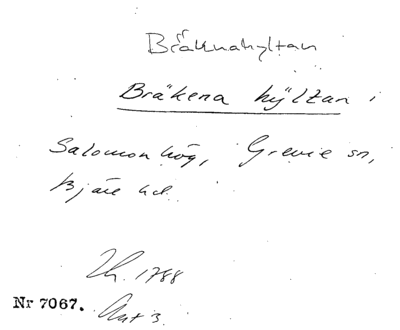 Bräknahyltan
Bräkena hÿltan i
Salomonhög, Grevie sn,
Bjäre hd.
Lh. 1788
Nr 7067. Akt 3.